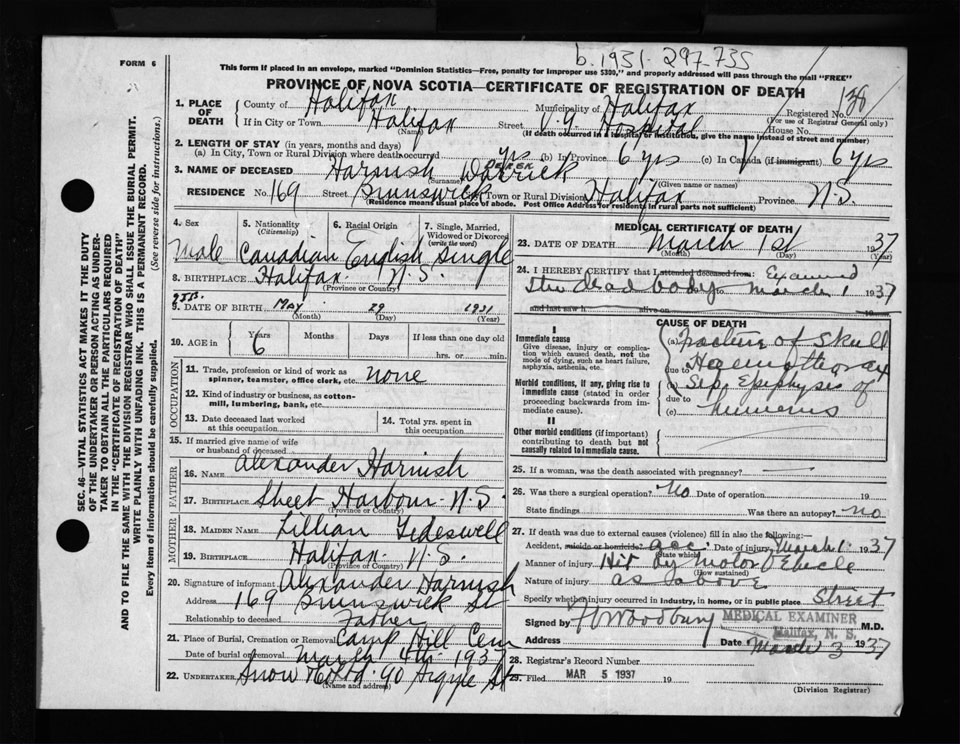 b. 1931-297-735
FORM 6
This form if placed in an envelope, marked "Dominion Statistics—Free, penalty for improper use $300," and properly addressed will pass through the mail "FREE"
PROVINCE OF NOVA SCOTIA—CERTIFICATE OF REGISTRATION OF DEATH
1. PLACE OF DEATH County of Halifax Municipality of Halifax Registered No. 138
(For use of Registrar General only)
If in City or Town Halifax Street V. G. Hospital House No.
(Name) (If death occurred in a hospital or institution, give the name instead of street and number)
2. LENGTH OF STAY (in years, months and days)
(a) In City, Town or Rural Division where death occurred yrs (b) In Province 6 yrs (c) In Canada (if immigrant) 6 yrs
3. NAME OF DECEASED Harnish Derrick
DEREK
(Surname) (Given name or names)
RESIDENCE No. 169 Street Brunswick City, Town or Rural Division Halifax Province N.S.
(Residence means usual place of abode. Post Office Address for residents in rural parts not sufficient)
4. Sex 5. Nationality (Citizenship) 6. Racial Origin 7. Single, Married, Widowed or Divorced (write the word)
Male Canadian English Single
8. BIRTHPLACE Halifax N.S.
(Province or Country)
9. DATE OF BIRTH May 29 1931
(Month) (Day) (Year)
10. AGE in Years Months Days If less than one day old
6 hrs. or min.
OCCUPATION
11. Trade, profession or kind of work as spinner, teamster, office clerk, etc. none
12. Kind of industry or business, as cotton-mill, lumbering, bank, etc.
13. Date deceased last worked at this occupation
14. Total yrs. spent in this occupation
15. If married give name of wife or husband of deceased
FATHER
16. NAME Alexander Harnish
17. BIRTHPLACE Sheet Harbour N.S.
(Province or Country)
MOTHER
18. MAIDEN NAME Lillian Tideswell
19. BIRTHPLACE Halifax N.S.
(Province or Country)
20. Signature of informant Alexander Harnish
Address 169 Brunswick St
Relationship to deceased Father
21. Place of Burial, Cremation or Removal Camp Hill Cem
Date of burial or removal March 4th 1937
22. UNDERTAKER Snow & Co Ltd 90 Argyle St
(Name and address)
MEDICAL CERTIFICATE OF DEATH
23. DATE OF DEATH March 1st 1937
(Month) (Day) (Year)
24. I HEREBY CERTIFY that I attended deceased from: Examined
the dead body March 1 1937
and last saw h alive on 19
CAUSE OF DEATH
I
Immediate cause
Give disease, injury or complication which caused death, not the mode of dying, such as heart failure, asphyxia, asthenia, etc.
(a) Fracture of Skull
due to Haemothorax
Morbid conditions, if any, giving rise to immediate cause (stated in order proceeding backwards from immediate cause).
(b) Sep. Epiphysis of
due to
(c) humerus
II
Other morbid conditions (if important) contributing to death but not causally related to immediate cause.
25. If a woman, was the death associated with pregnancy? —
26. Was there a surgical operation? No Date of operation 19
State findings Was there an autopsy? no
27. If death was due to external causes (violence) fill in also the following:—
Accident, suicide or homicide? acc. Date of injury March 1 1937
(State which)
Manner of injury Hit by Motor Vehicle
(How sustained)
Nature of injury as above
Specify whether injury occurred in Industry, in home, or in public place Street
Signed by F V Woodbury M.D.
MEDICAL EXAMINER
Halifax, N. S.
Address Date March 3 1937
28. Registrar's Record Number
29. Filed MAR 5 1937 19
(Division Registrar)
SEC. 46—VITAL STATISTICS ACT MAKES IT THE DUTY
OF THE UNDERTAKER OR PERSON ACTING AS UNDER-
TAKER TO OBTAIN ALL THE PARTICULARS REQUIRED
IN THE "CERTIFICATE OF REGISTRATION OF DEATH"
AND TO FILE THE SAME WITH THE DIVISION REGISTRAR WHO SHALL ISSUE THE BURIAL PERMIT.
WRITE PLAINLY WITH UNFADING INK. THIS IS A PERMANENT RECORD.
Every item of information should be carefully supplied. (See reverse side for instructions.)